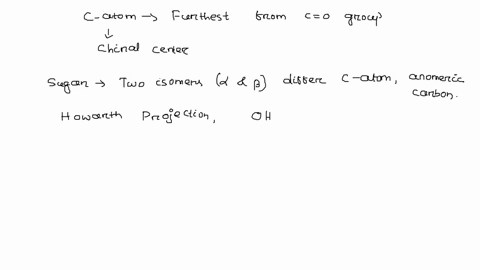 C-atom → Furthest from C=O group
↓
Chiral center
Sugar → Two isomers (α & β) differ C-atom, anomeric
carbon.
Howarth Projection, OH